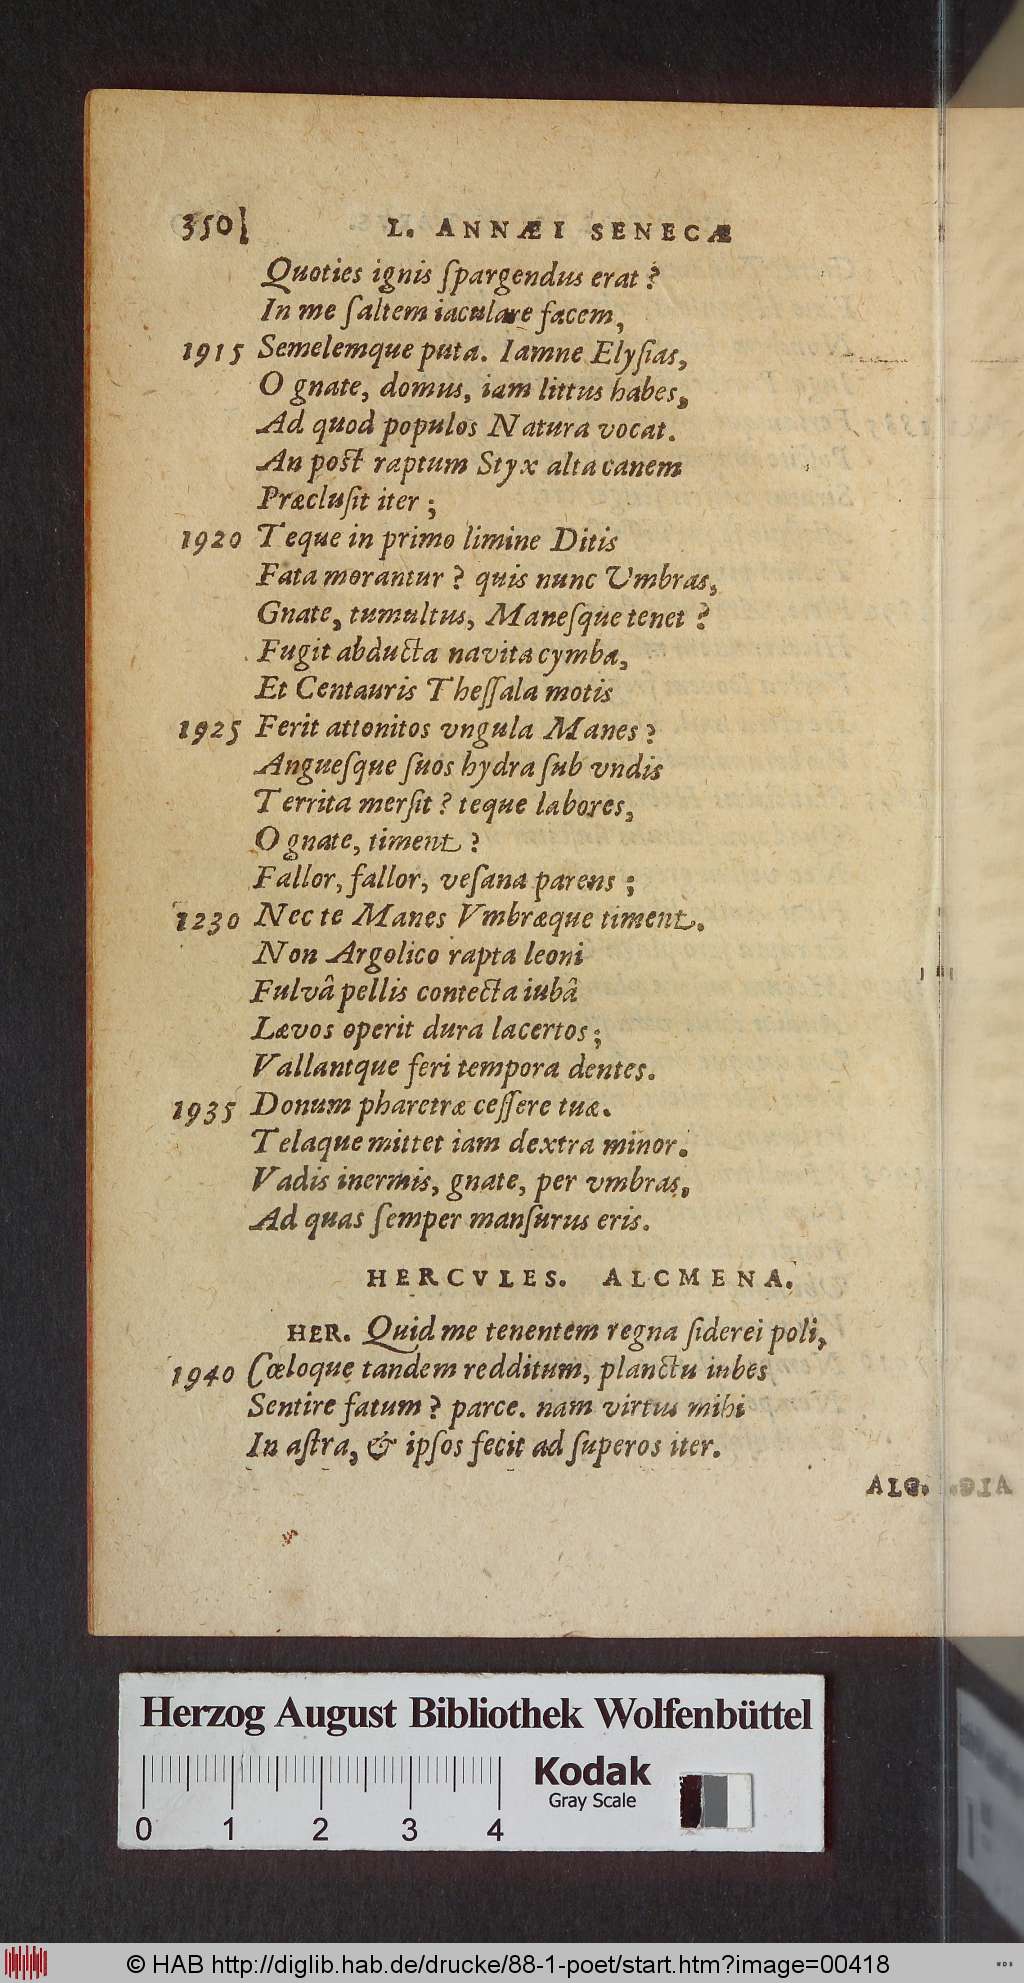 350 L. ANNÆI SENECÆ
Quoties ignis ſpargendus erat?
In me ſaltem iaculare facem,
1915 Semelemque puta. Iamne Elyſias,
O gnate, domus, iam littus habes,
Ad quod populos Natura vocat.
An post raptum Styx alta canem
Præcluſit iter;
1920 Teque in primo limine Ditis
Fata morantur? quis nunc Vmbras,
Gnate, tumultus, Maneſque tenet?
Fugit abducta navita cymba,
Et Centauris Theſſala motis
1925 Ferit attonitos vngula Manes?
Angueſque ſuos hydra ſub vndis
Territa merſit? teque labores,
O gnate, timent?
Fallor, fallor, veſana parens;
1230 Nec te Manes Vmbræque timent.
Non Argolico rapta leoni
Fulvâ pellis contecta iubâ
Lævos operit dura lacertos;
Vallantque feri tempora dentes.
1935 Donum pharetræ ceſſere tuæ.
Telaque mittet iam dextra minor.
Vadis inermis, gnate, per vmbras,
Ad quas ſemper manſurus eris.
HERCVLES. ALCMENA.
HER. Quid me tenentem regna ſiderei poli,
1940 Cœloque tandem redditum, planctu iubes
Sentire fatum? parce. nam virtus mihi
In aſtra, & ipſos fecit ad ſuperos iter.
ALC.
Herzog August Bibliothek Wolfenbüttel
Kodak
Gray Scale
0 1 2 3 4
© HAB http://diglib.hab.de/drucke/88-1-poet/start.htm?image=00418